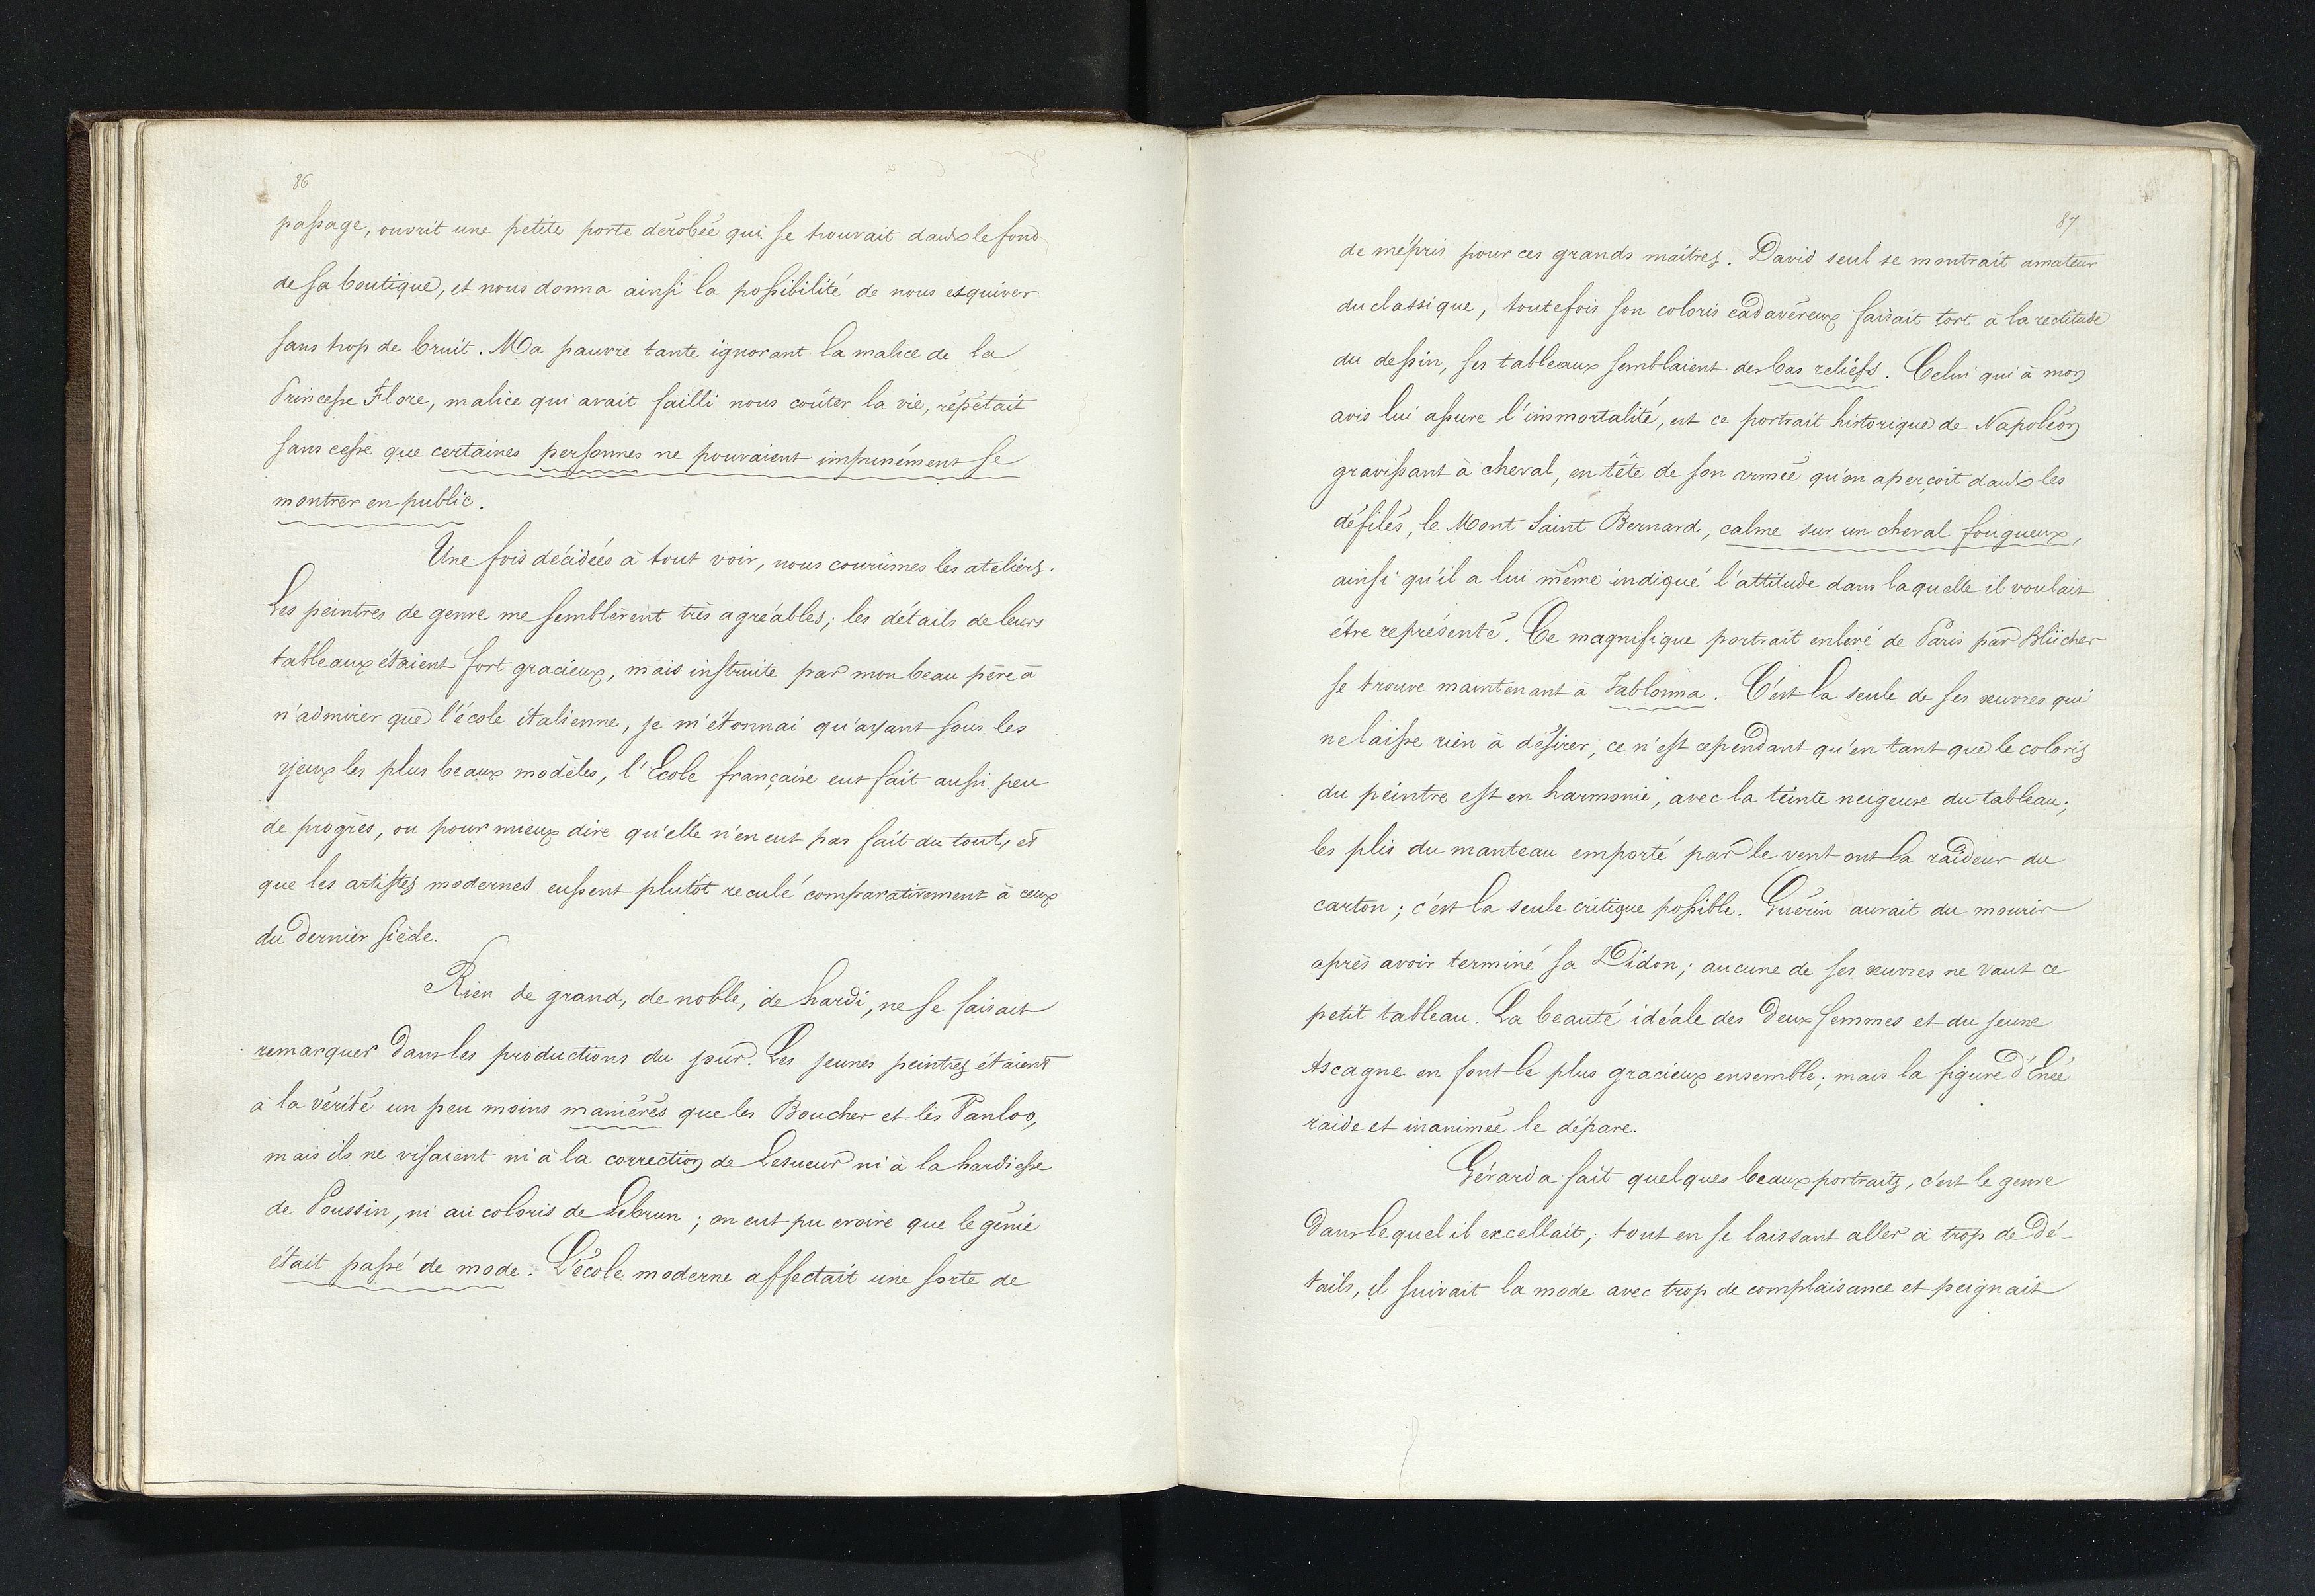 86
passage, ouvrit une petite porte dérobée qui se trouvait dans le fond
de sa boutique, et nous donna ainsi la possibilité de nous esquiver
sans trop de bruit. Ma pauvre tante ignorant la malice de la
Princesse Flore, malice qui avait failli nous coûter la vie, répétait
sans cesse que certaines personnes ne pouvaient impunément se
montrer en public.
Une fois décidées à tout voir, nous courûmes les ateliers.
Les peintres de genre me semblèrent très agréables; les détails de leurs
tableaux étaient fort gracieux, mais instruite par mon beau père à
n'admirer que l'école italienne, je m'étonnai qu'ayant sous les
yeux les plus beaux modèles, l'Ecole française eut fait aussi peu
de progrès, ou pour mieux dire qu'elle n'en eut pas fait du tout, et
que les artistes modernes eussent plutôt reculé comparativement à ceux
du dernier siècle.
Rien de grand, de noble, de hardi, ne se faisait
remarquer dans les productions du jour. Les jeunes peintres étaient
à la vérité un peu moins maniérés que les Boucher et les Vanloo,
mais ils ne visaient ni à la correction de Lesueur ni à la hardiesse
de Poussin, ni au coloris de Lebrun; on eut pu croire que le génie
était passé de mode. L'école moderne affectait une sorte de
87
de mépris pour ces grands maîtres. David seul se montrait amateur
du classique, toutefois son coloris cadavéreux faisait tort à la rectitude
du dessin, ses tableaux semblaient des bas reliefs. Celui qui à mon
avis lui assure l'immortalité, est ce portrait historique de Napoléon
gravissant à cheval, en tête de son armée qu'on aperçoit dans les
défilés, le Mont Saint Bernard, calme sur un cheval fougueux,
ainsi qu'il a lui même indiqué l'attitude dans laquelle il voulait
être représenté. Ce magnifique portrait enlevé de Paris par Blücher
se trouve maintenant à Jablonna. C'est la seule de ses œuvres qui
ne laisse rien à désirer, ce n'est cependant qu'en tant que le coloris
du peintre est en harmonie, avec la teinte neigeuse du tableau;
les plis du manteau emporté par le vent ont la raideur du
carton; c'est la seule critique possible. Guérin aurait du mourir
après avoir terminé sa Didon; aucune de ses œuvres ne vaut ce
petit tableau. La beauté idéale des deux femmes et du jeune
Ascagne en font le plus gracieux ensemble; mais la figure d'Enée
raide et inanimée le dépare.
Gérard a fait quelques beaux portraits, c'est le genre
dans lequel il excellait; tout en se laissant aller à trop de dé-
tails, il suivait la mode avec trop de complaisance et peignait